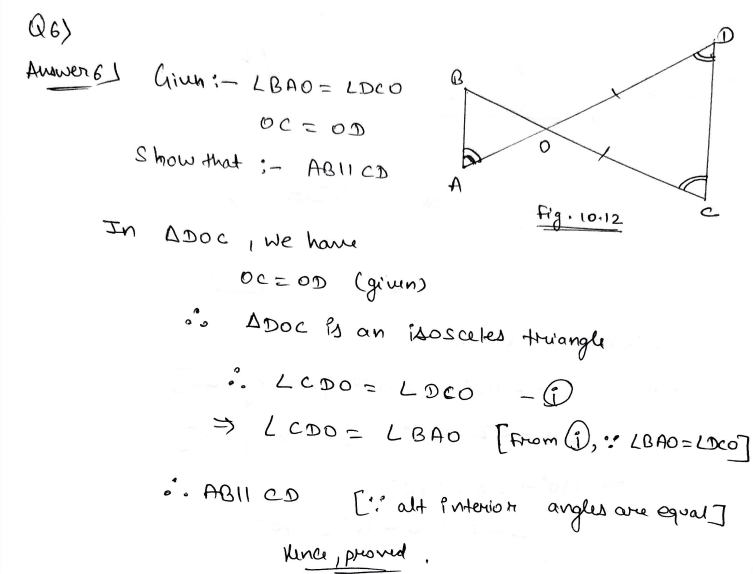 Q6)
Answer 6) Given :- ∠BAO = ∠DCO
OC = OD
Show that :- AB || CD
B
D
O
A
C
Fig. 10.12
In ΔDOC, we have
OC = OD (given)
∴ ΔDOC is an isosceles triangle
∴ ∠CDO = ∠DCO - (i)
⇒ ∠CDO = ∠BAO [From (i), ∵ ∠BAO = ∠DCO]
∴ AB || CD [∵ alt interior angles are equal]
Hence, proved.